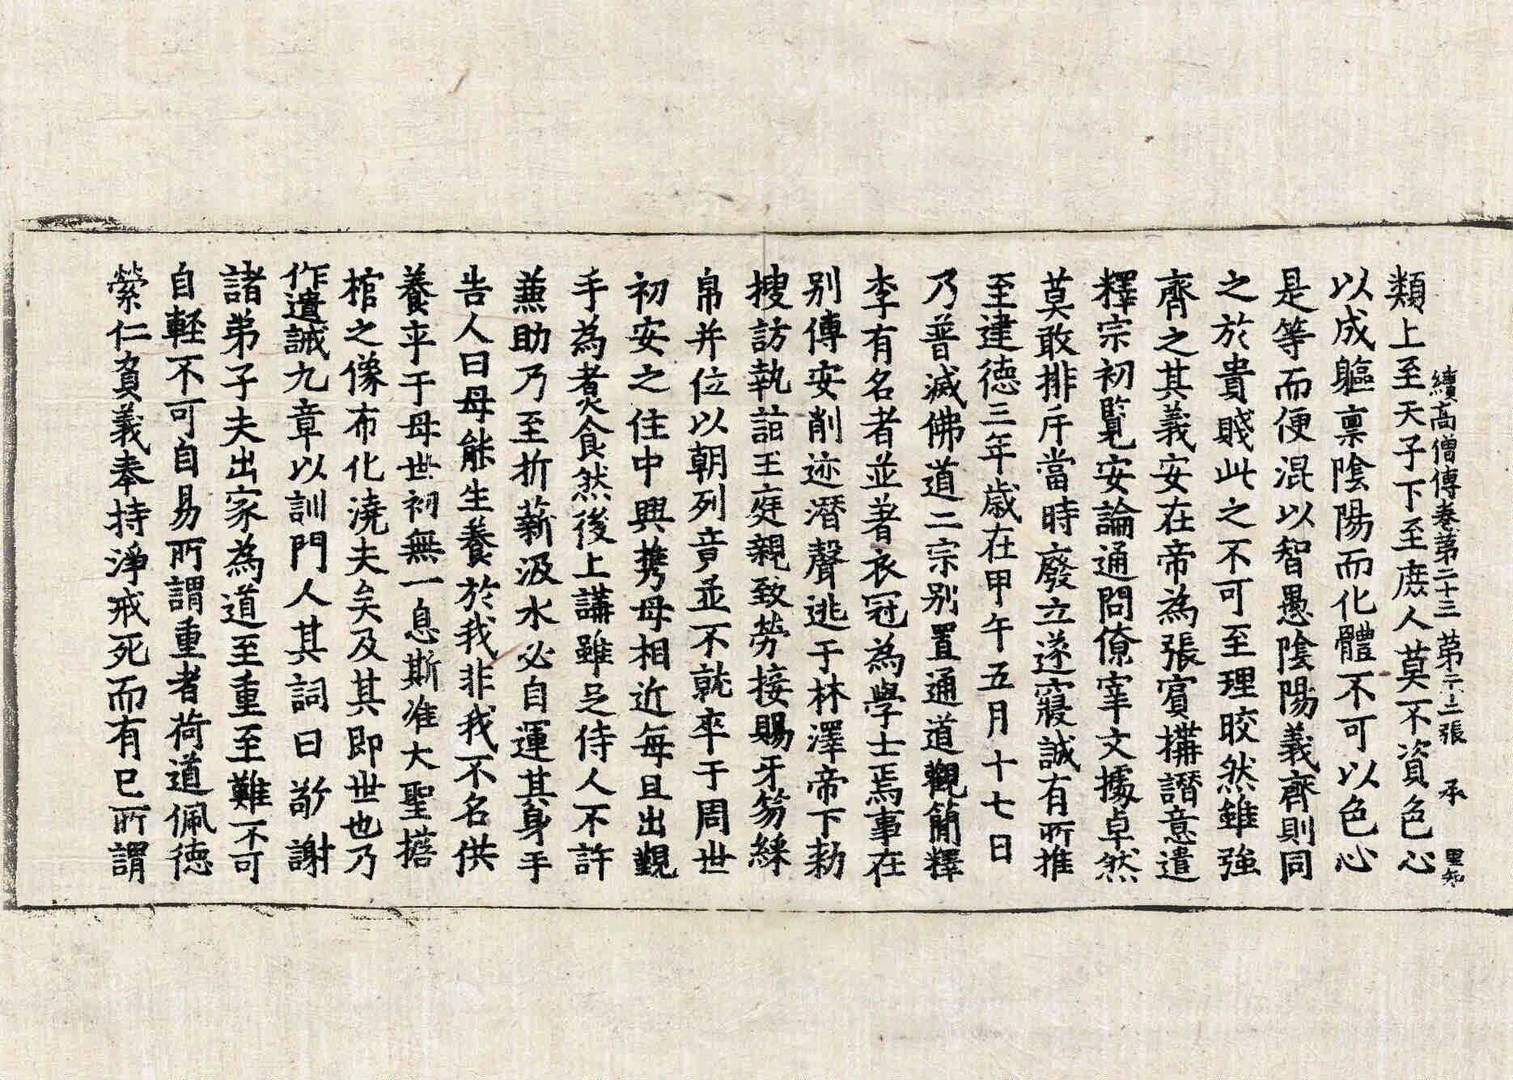 續高僧傳卷第二十三 第二十二張 承 里知
類上至天子下至庶人莫不資色心
以成軀稟陰陽而化體不可以色心
是等而便混以智愚陰陽義齊則同
之於貴賤此之不可至理皎然雖強
齊之其義安在帝為張賓搆譖意遣
釋宗初覽安論通問僚宰文據卓然
莫敢排斥當時廢立遂寢誠有所推
至建德三年歲在甲午五月十七日
乃普滅佛道二宗別置通道觀簡釋
李有名者並著衣冠為學士焉事在
別傳安削迹潛聲逃于林澤帝下勑
搜訪執詣王庭親致勞接賜牙笏綵
帛并位以朝列竟並不就卒于周世
初安之住中興携母相近每旦出覲
手為煮食然後上講雖足侍人不許
兼助乃至折薪汲水必自運其身手
告人曰母能生養於我非我不名供
養乎于母世初無一息斯准大聖擔
棺之像布化澆夫矣及其即世也乃
作遺誡九章以訓門人其詞曰敬謝
諸弟子夫出家為道至重至難不可
自輕不可自易所謂重者荷道佩德
縈仁負義奉持淨戒死而有已所謂